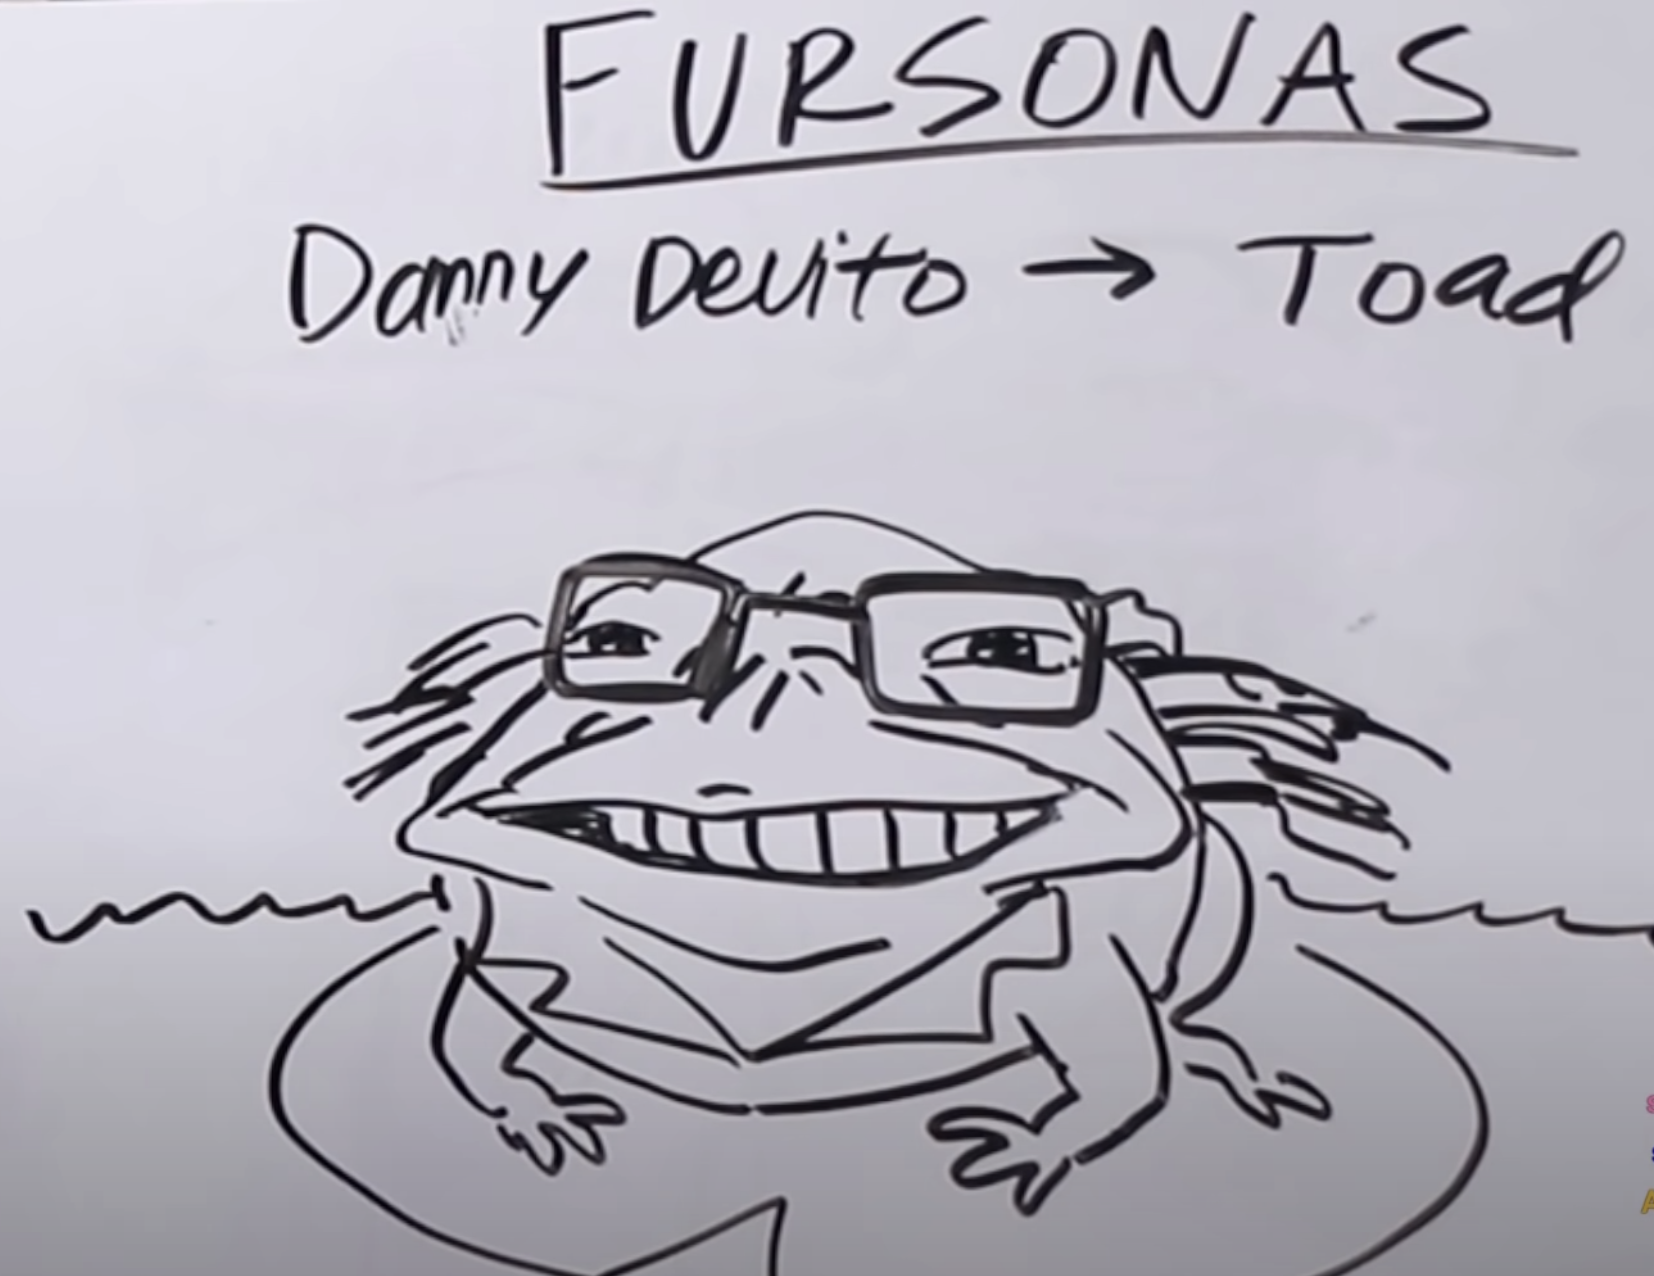 FURSONAS
Danny Devito → Toad